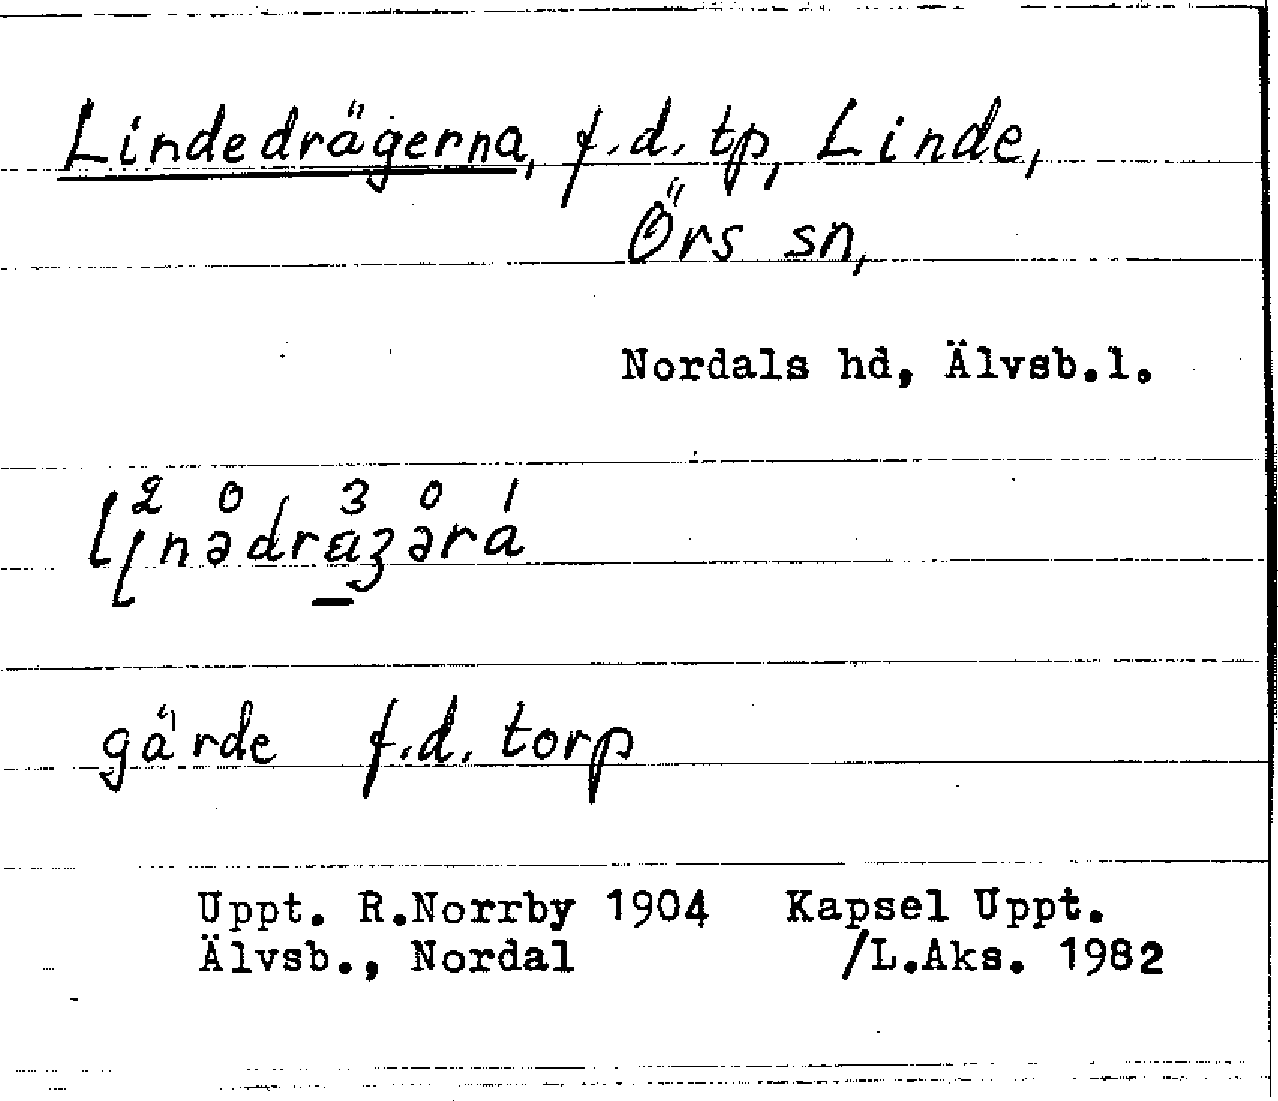 Lindedrägerna, f.d. tp, Linde,
Örs sn,
Nordals hd, Älvsb.l.
gärde f.d. torp
Uppt. R.Norrby 1904 Kapsel Uppt.
Älvsb., Nordal /L.Aks. 1982